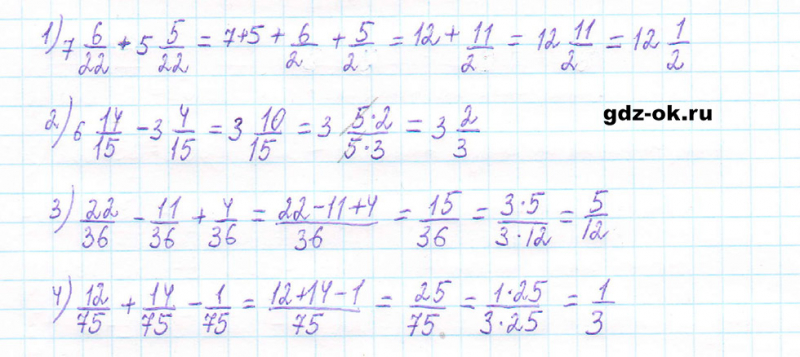 1) 7 6/22 + 5 5/22 = 7+5 + 6/2 + 5/2 = 12 + 11/2 = 12 11/2 = 12 1/2
gdz-ok.ru
2) 6 14/15 - 3 4/15 = 3 10/15 = 3 5·2/5·3 = 3 2/3
3) 22/36 - 11/36 + 4/36 = 22-11+4/36 = 15/36 = 3·5/3·12 = 5/12
4) 12/75 + 14/75 - 1/75 = 12+14-1/75 = 25/75 = 1·25/3·25 = 1/3